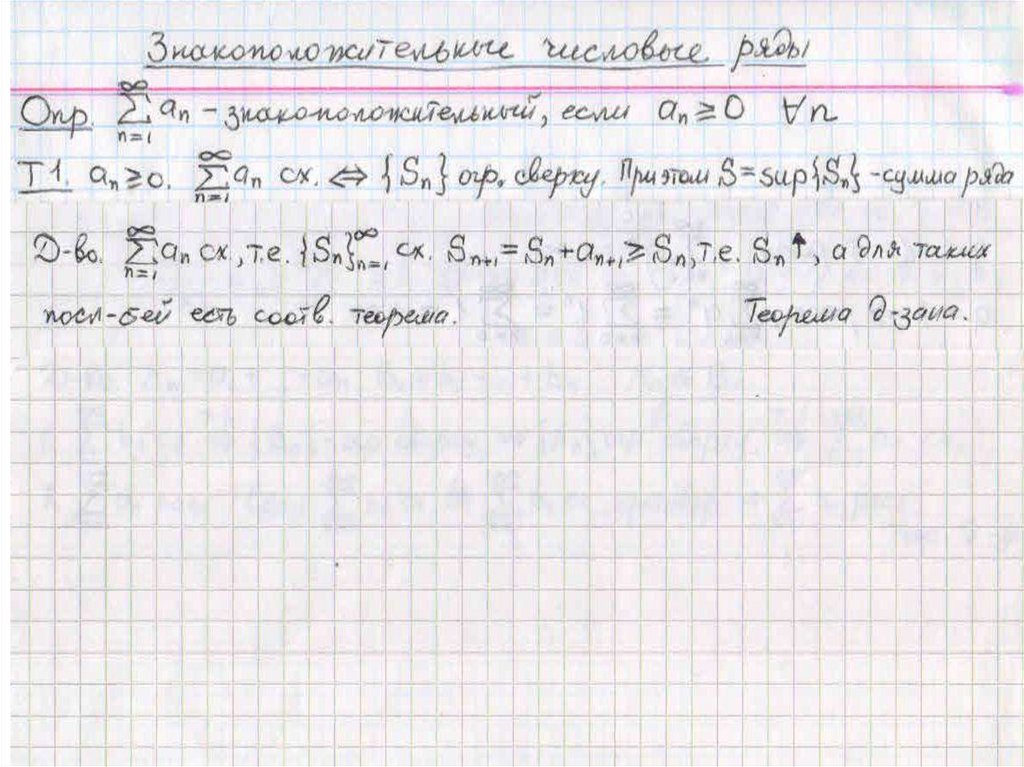 Знакоположительные числовые ряды
Опр. ∑_{n=1}^{∞} aₙ - знакоположительный, если aₙ ≥ 0 ∀n
Т1. aₙ ≥ 0. ∑_{n=1}^{∞} aₙ сх. ⇔ {Sₙ} огр. сверху. При этом S = sup{Sₙ} - сумма ряда
Д-во. ∑_{n=1}^{∞} aₙ сх, т.е. {Sₙ}_{n=1}^{∞} сх. Sₙ₊₁ = Sₙ + aₙ₊₁ ≥ Sₙ, т.е. Sₙ↑, а для таких
посл-тей есть соотв. теорема. Теорема д-зана.